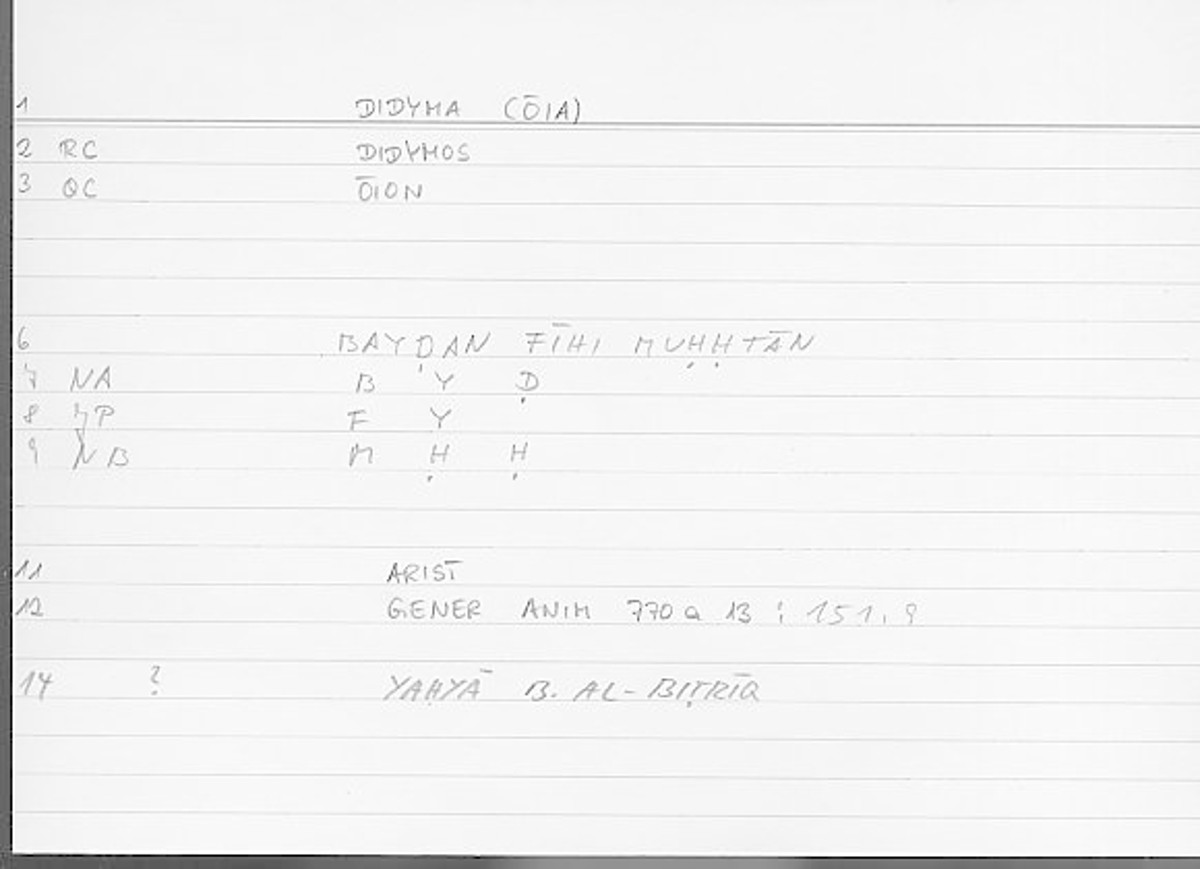 1 DIDYMA (ŌIA)
2 RC DIDYMOS
3 QC ŌION
6 BAYḌAN FĪHI MUḤḤTĀN
7 NA B Y Ḍ
8 P F Y
9 NB M Ḥ Ḥ
11 ARIST
12 GENER ANIM 770 a 13 ; 151,9
14 ? YAḤYĀ B. AL-BIṬRĪQ